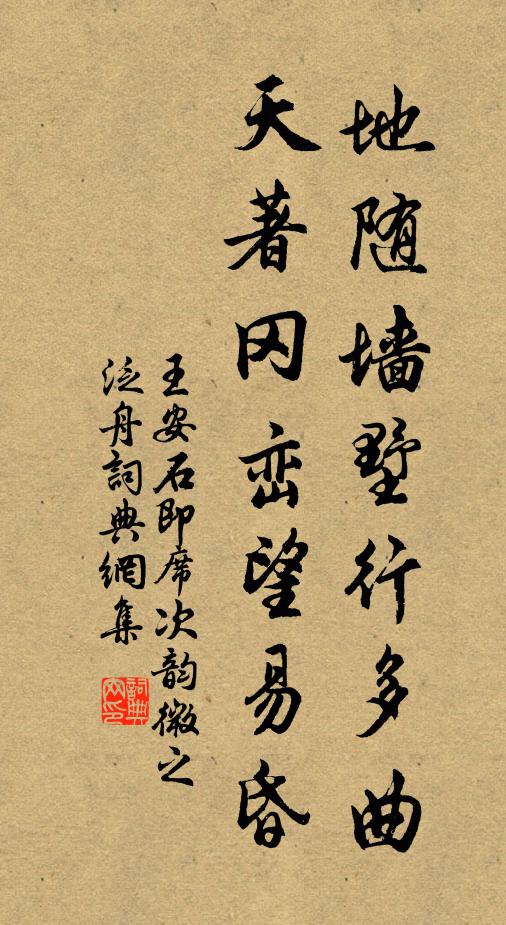 地随墙墅行多曲
天著冈峦望易昏
王安石即席次韵微之
泛舟詞典網集
詞典
网印